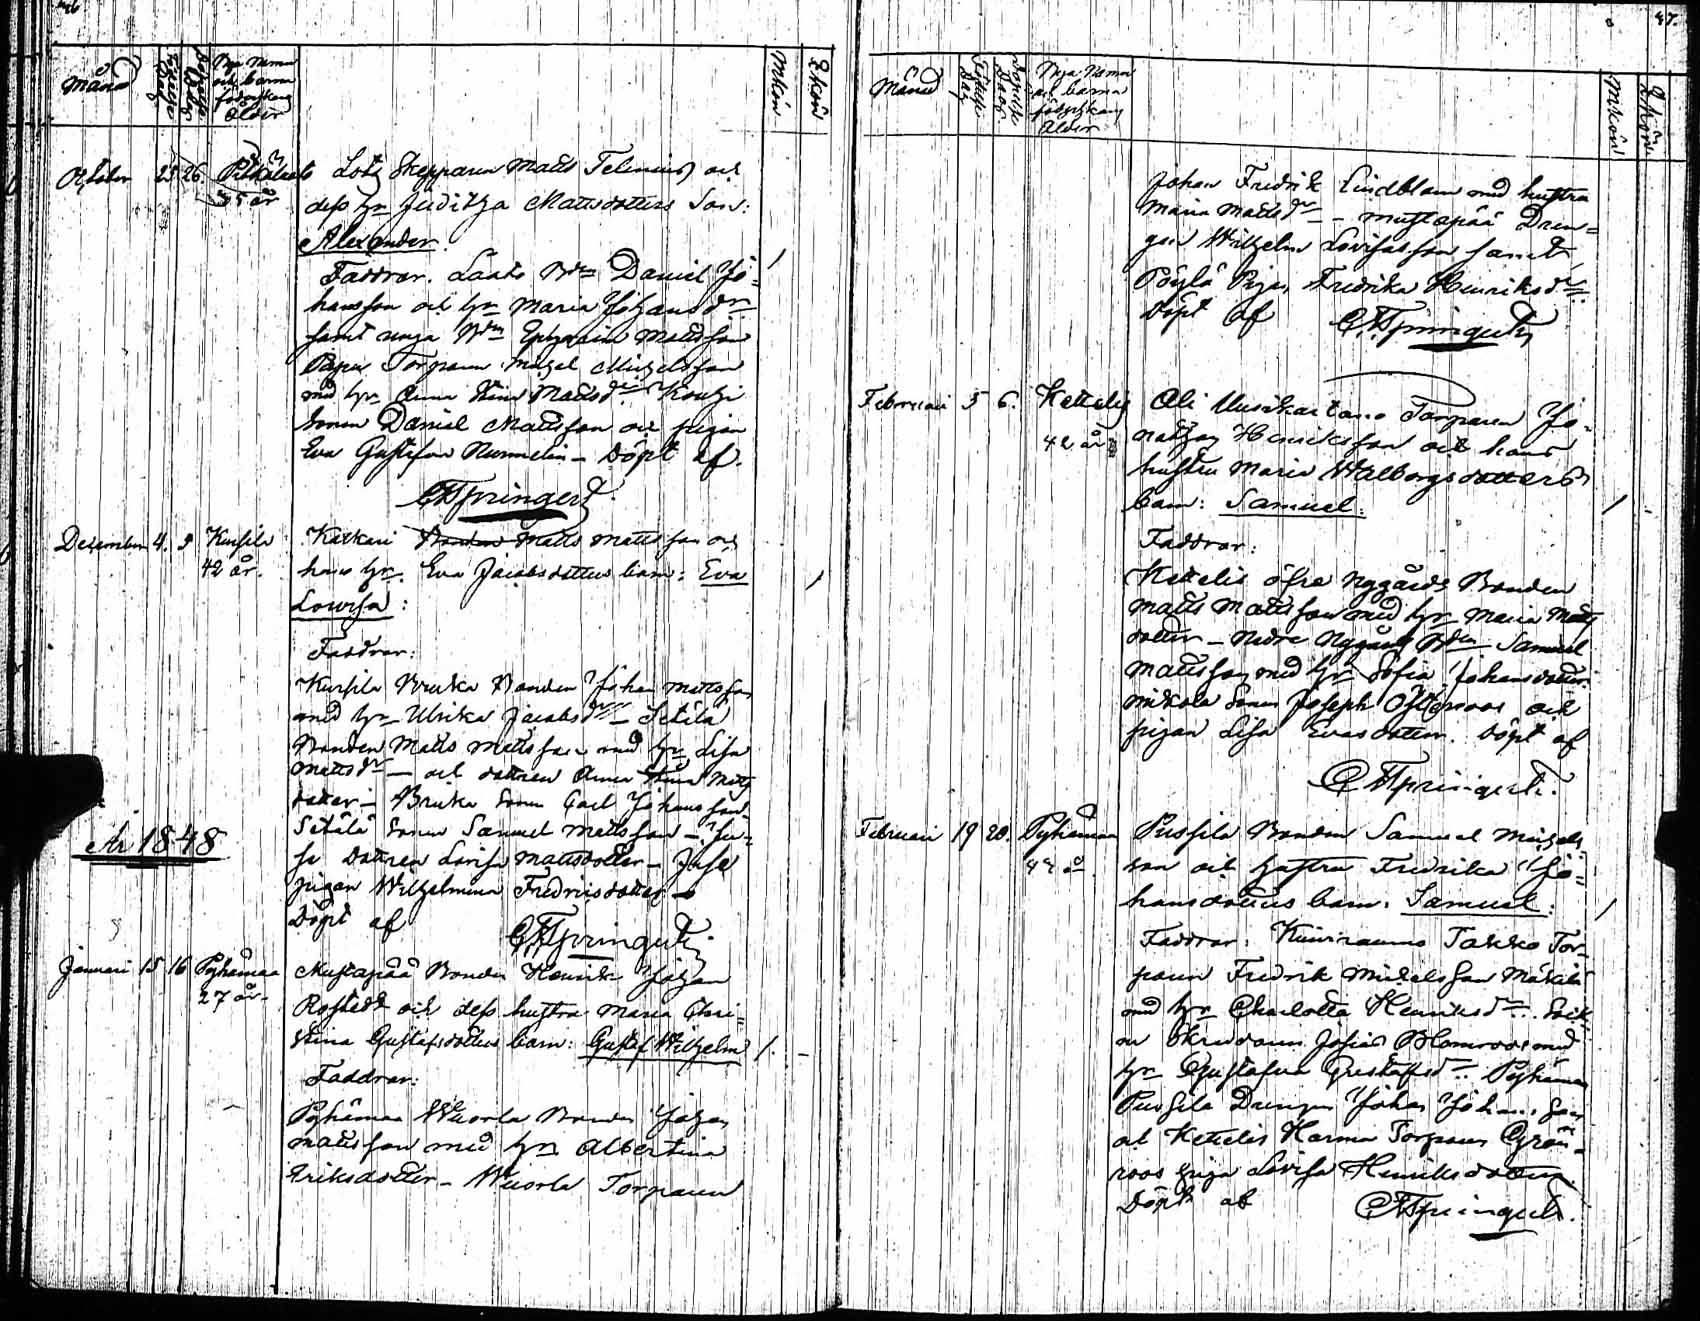 Månad
Mkön
Qkön
October 25 26.
35 år
Lots Skepparen Matts Telenius och
dess hr Juditha Mattsdotters Son:
Alexander.
Faddrar. Daniel Jo=
hansson och hr Maria Johansdr
samt unga Bdn Ephraim Mattsson
Torparen Michel Michelsson
med hr Anna Stina Mattsdr
Sonen Daniel Mattsson och pigan
Eva Gustafva Nummelin – Döpt af
December 4. 5 Kursila
42 år.
Karkari Bonden Matts Mattsson och
hans hr. Eva Jacobsdotters barn: Eva
Lowisa:
Faddrar:
Kursila Bruka Bonden Johan Mattsson
med hr Ulrika Jacobsdr – Sitälä
Bonden Matts Mattsson med hr Lisa
Mattsdr – och dottren Anna Stina Matts
dotter – Bruka Sonen Carl Johansson
Sitälä Sonen Samuel Mattsson –
dottren Lovisa Mattsdotter –
pigan Wilhelmina Fredricsdotter –
Döpt af
År 1848
Januari 15 16 Pyhämaa
27 år.
Mustapää Bonden Henrik Johan
och dess hustru Maria Chri=
stina Gustafsdotters barn: Gustaf Wilhelm
Faddrar:
Pyhämaa Wuorla Bonden Johan
Mattsson med hr Albertina
Eriksdotter – Wuorla Torparen
47.
Månad
Mkön
Qkön
Johan Fredrik Lindblom med hustru
Maria Mattsdr – Mustapää Dren=
gen Wilhelm Lovisasson samt
Pöylä Pigan Fredrika Henriksdr.
Döpt af
Februari 5 6. Kettelis
42 år
Ali Uusikartano Torparen Jo=
nathan Henriksson och hans
hustru Maria Walborgsdotters
barn: Samuel:
Faddrar:
Kettelis öfre Nygårds Bonden
Matts Mattsson med hr Maria Matts
dotter – Nedre Nygård Bdn Samuel
Mattsson med hr Sofia Johansdotter
Mikola Sonen Joseph Öfverroos och
pigan Lisa Evasdotter. Döpt af
Februari 19 20. Pyhämaa
44 år
Pursila Bonden Samuel Michels
son och hustru Fredrika Jo=
hansdotters barn. Samuel:
Faddrar: Kuivraumo Takko Tor=
paren Fredrik Michelsson
med hr Charlotta Henriksdr.
Skräddaren Josias Blomroos med
hr Gustafva Gustafsdr. Pyhämaa
Pursila Drengen Johan Johansson
och Kettelis Torparen Grön=
roos piga Lovisa Henriksdotter
Döpt af